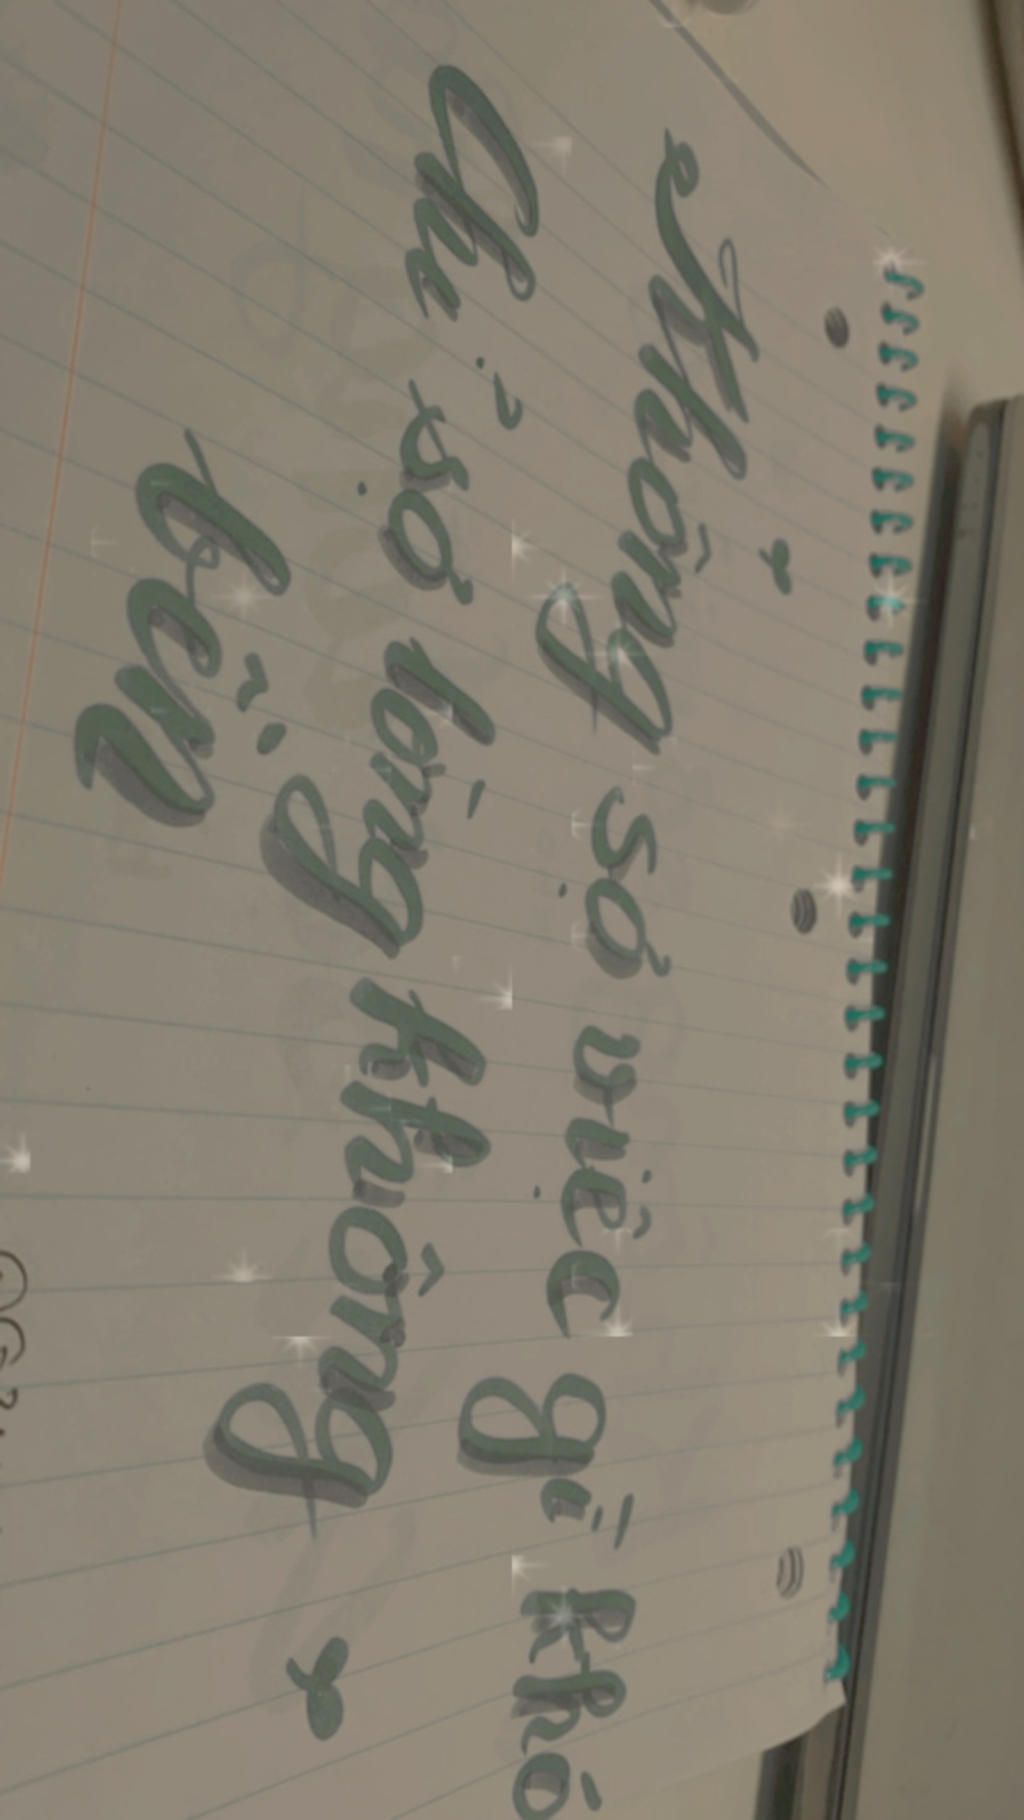 Không sợ việc gì khó
Chỉ sợ lòng không
bền